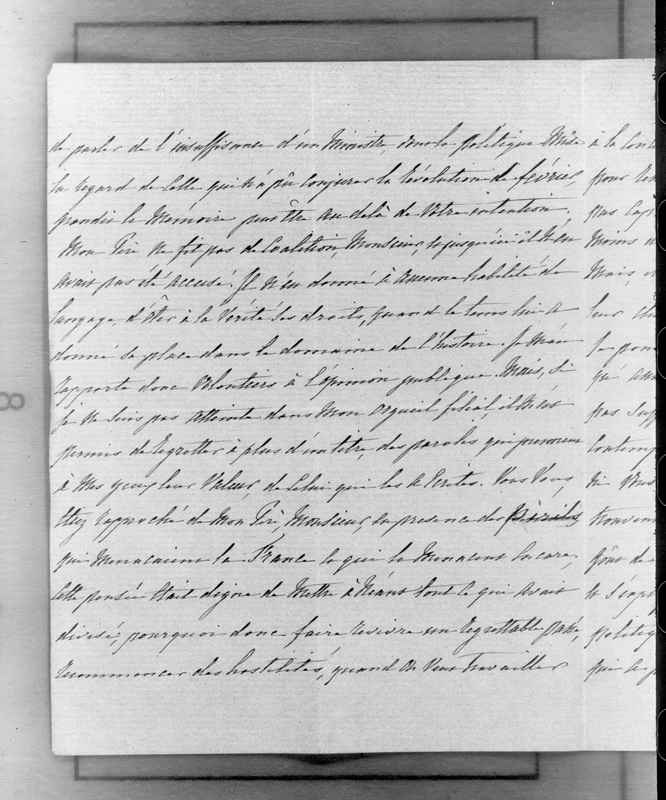 de parler de l'insuffisance d'un Ministre, dont la politique Mise à la
la regard de Celle qui n'a pû conjurer la Révolution de février, pour
grandir le Memoire peut être au delà de Votre intention. pas
Mon Père Ne fit pas de Coalition, Monsieur, et jusqu'ici il N'en Moins
Avait pas été accusé. Il N'est donné à Aucune habilité de Mais,
langage, d'ôter à la Vérité ses droits, quand le tems lui a leur
donné sa place dans le domaine de l'histoire. Je M'en
rapporte donc Volontiers à l'opinion publique. Mais, si
Je Ne Suis pas Atteinte dans Mon Orgueil filial, il M'est pas
permis de Regretter à plus d'un titre, des paroles qui prennent
à Mes yeux leur Valeur, de Celui qui les a Ecrites. Vous Vous
étiez rapproché de Mon Père, Monsieur, en presence des périls
qui Menacaient la France et qui la Menacent Encore;
Cette pensée était digne de Mettre à Néant tout Ce qui Avait
divisé; pourquoi donc faire revivre un Regrettable passé,
recommencer des hostilités, quand On Veut Travailler qui